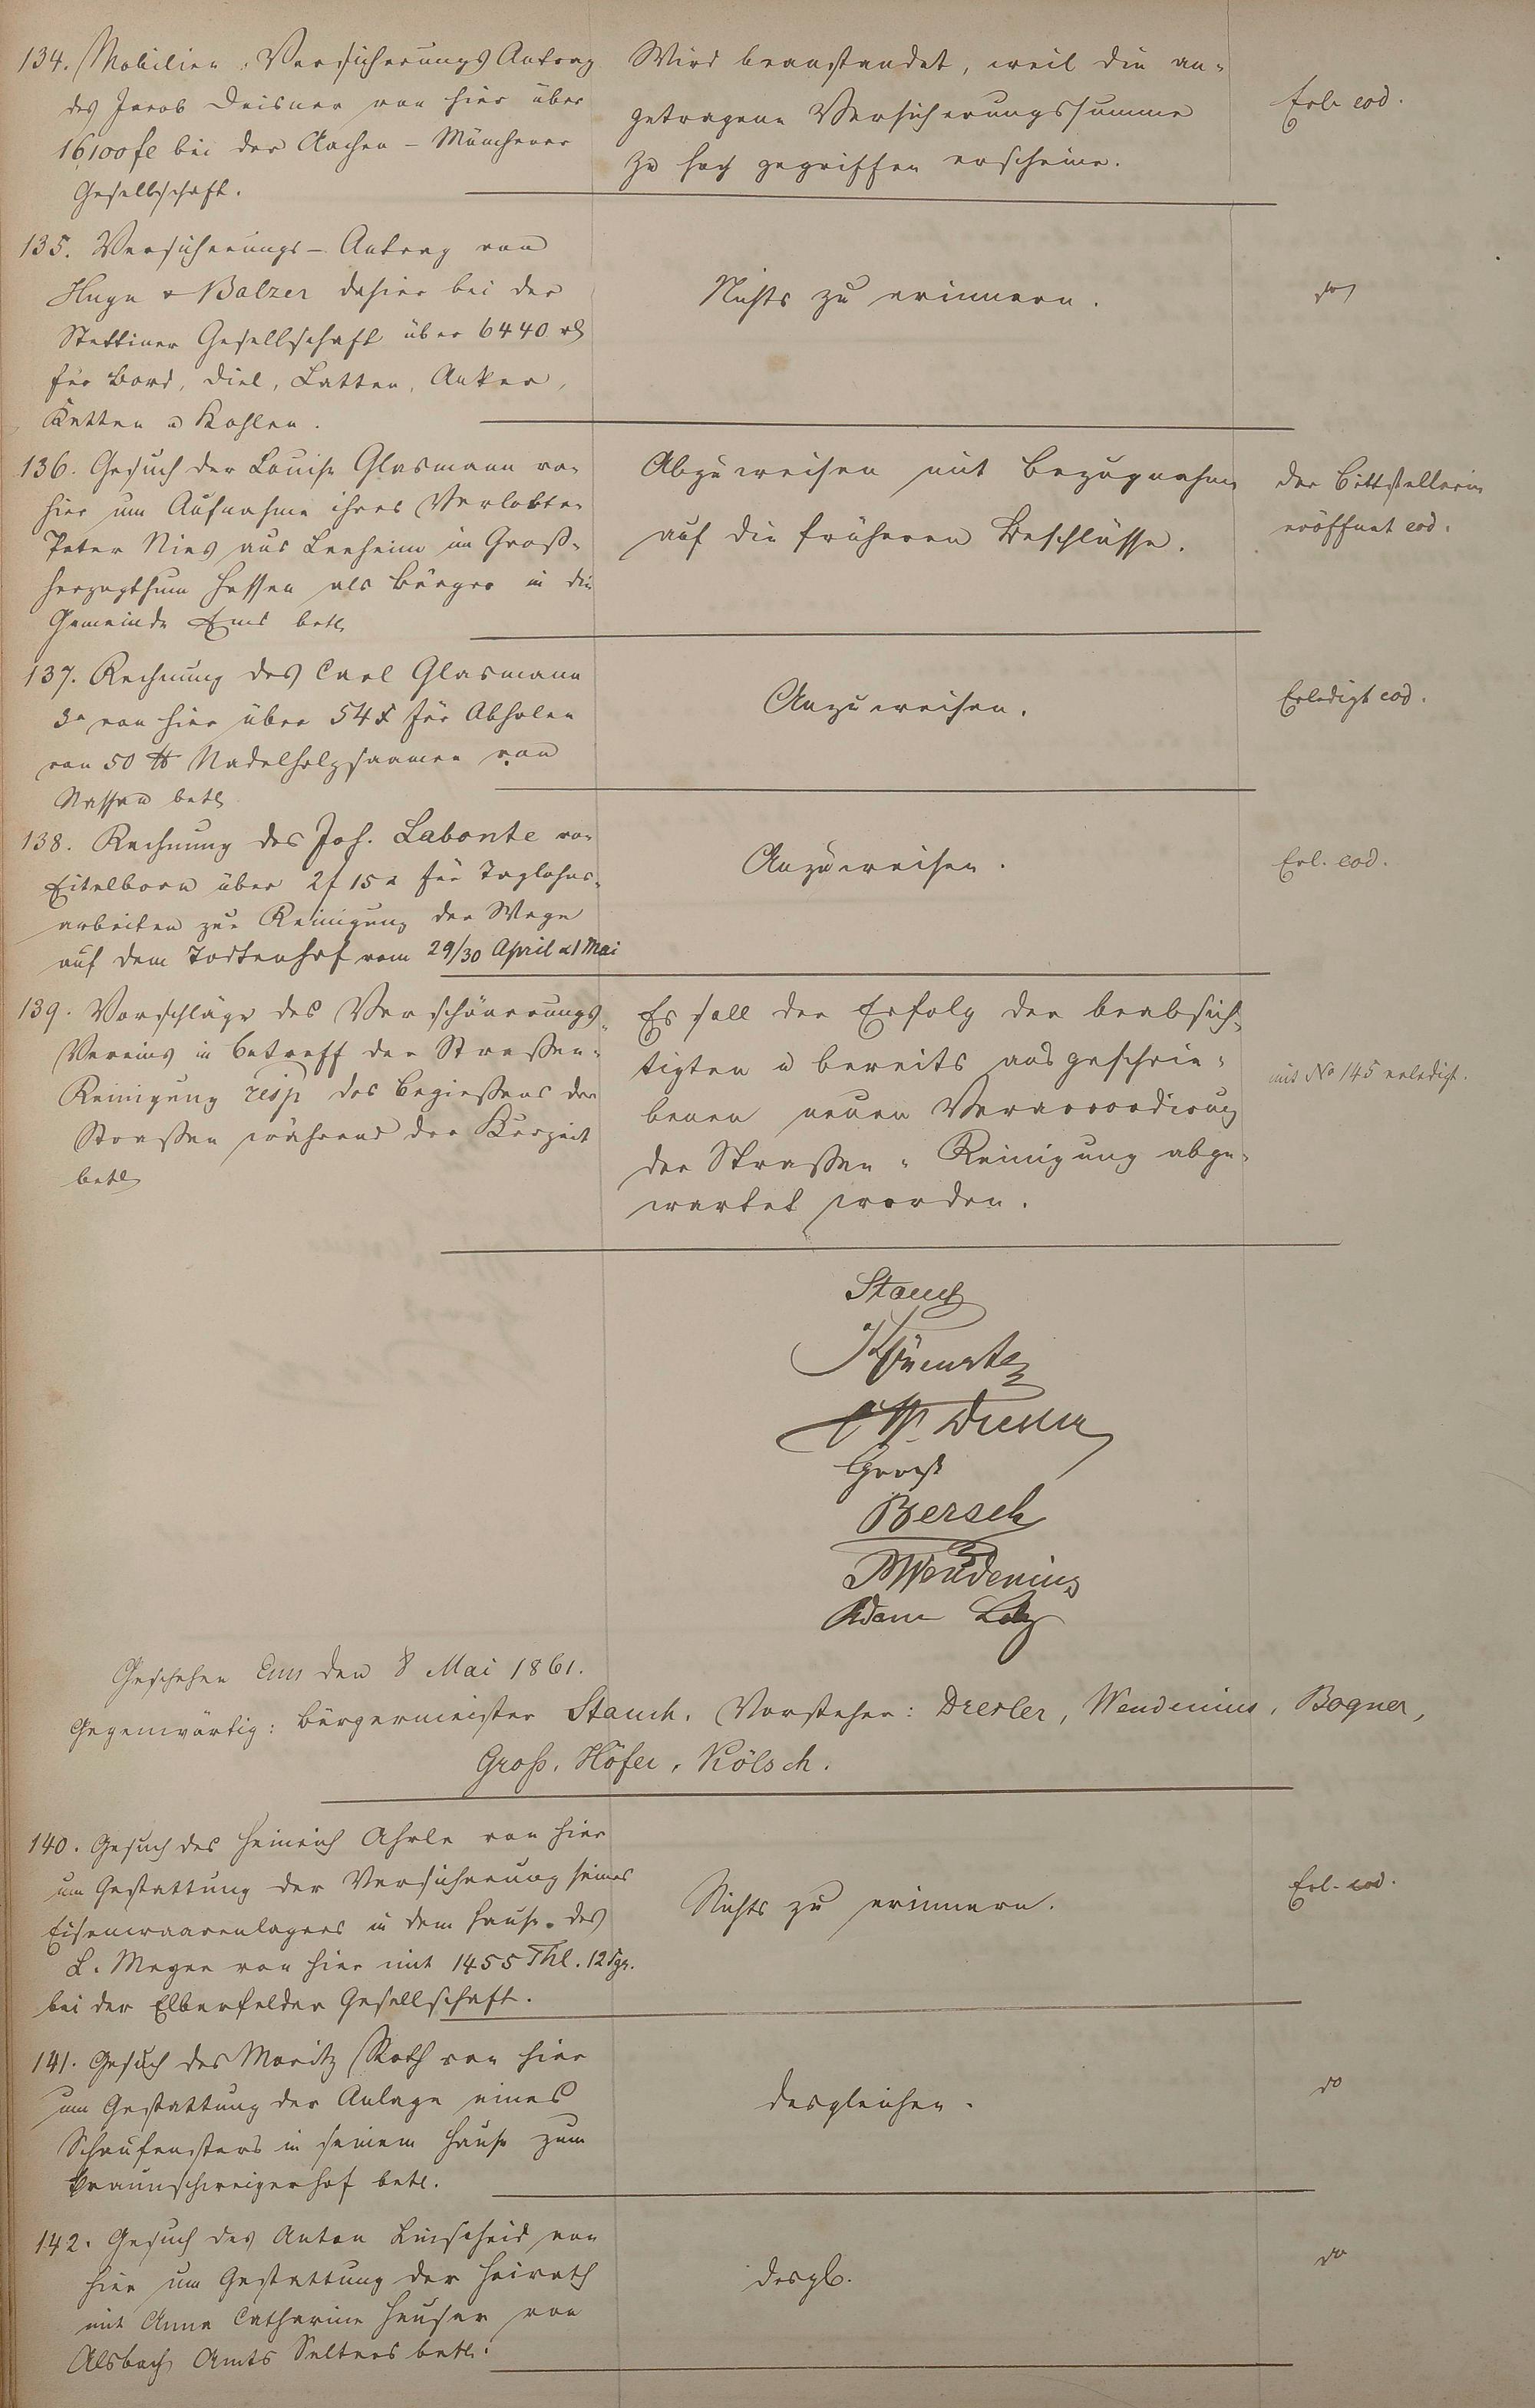 134. Mobilien-Versicherungs Antrag
des Jacob Deisner von hier über
16,100 fl bei der Aachen-Münchener
Gesellschaft.
Wird beanstandet, weil die an-
getragene Versicherungssumme
zu hoch gegriffen erscheine.
Erl. eod.
135. Versicherungs-Antrag von
Huyn & Balzer dahier bei der
Stettiner Gesellschaft über 6440 rl
für Bord, Diel, Latten, Anker,
Ketten u Kohlen.
Nichts zu erinnern.
do
136. Gesuch der Louise Glasmann von
hier um Aufnahme ihres Verlobten
Peter Nies aus Leeheim im Groß-
herzogthum Hessen als Bürger in die
Gemeinde Ems betr.
Abzuweisen mit Bezugnahme
auf die früheren Beschlüsse.
Der Bittstellerin
eröffnet eod.
137. Rechnung des Carl Glasmann
3r von hier über 54 x für Abholen
von 50 ℔ Nadelholzsaamen von
Nassau betr
Anzuweisen.
Erledigt eod.
138. Rechnung des Joh. Labonte von
Eitelborn über 2 f 15 x für Taglohns-
arbeiten zur Reinigung der Wege
auf dem Todtenhof vom 29/30 April u 1 Mai
Anzuweisen.
Erl. eod.
139. Vorschläge des Verschönerungs-
Vereins in Betreff der Straßen-
Reinigung resp des Begießens der
Straßen während der Kurzeit
betr
Es soll der Erfolg der beabsich-
tigten u bereits ausgeschrie-
benen neuen Veraccordirung
der Straßen-Reinigung abge-
wartet werden.
mit No 145 erledigt.
Stauch
Dresler
Groß
Bersch
Wendenius
Adam
Geschehen Ems den 8 Mai 1861.
Gegenwärtig: Bürgermeister Stauch. Vorsteher: Dresler, Wendenius, Bogner,
Groß, Höfer, Kölsch.
140. Gesuch des Heinrich Ahrle von hier
um Gestattung der Versicherung seines
Eisenwaarenlagers in dem Hause des
L. Meyer von hier mit 1455 Thl. 12 Sgr.
bei der Elberfelder Gesellschaft.
Nichts zu erinnern.
Erl. eod.
141. Gesuch des Moritz Roth von hier
um Gestattung der Anlage eines
Schaufensters in seinem Hause zum
Braunschweigerhof betr.
desgleichen.
do
142. Gesuch des Anton Linscheid von
hier um Gestattung der Heirath
mit Anna Catharine Heuser von
Alsbach Amts Selters betr.
desgl.
do